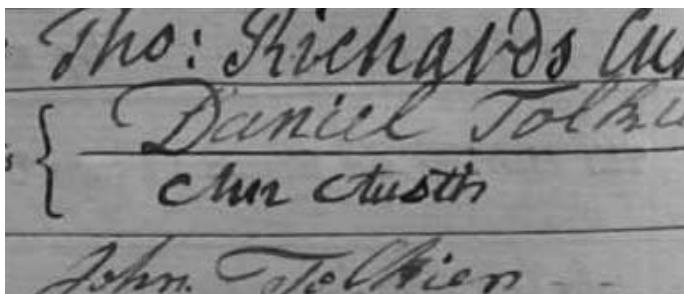 Tho: Richards Cu
Daniel Tolki
Ann Austin
John Tolkien